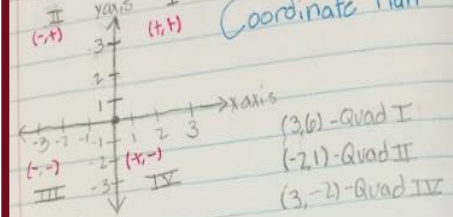 II yaxis I
(-,+) (+,+) Coordinate
3
2
1
xaxis
-3 -2 -1 1 2 3
-1
(-,-) -2 (+,-)
III -3 IV
(3,6)-Quad I
(-2,1)-Quad II
(3,-2)-Quad IV